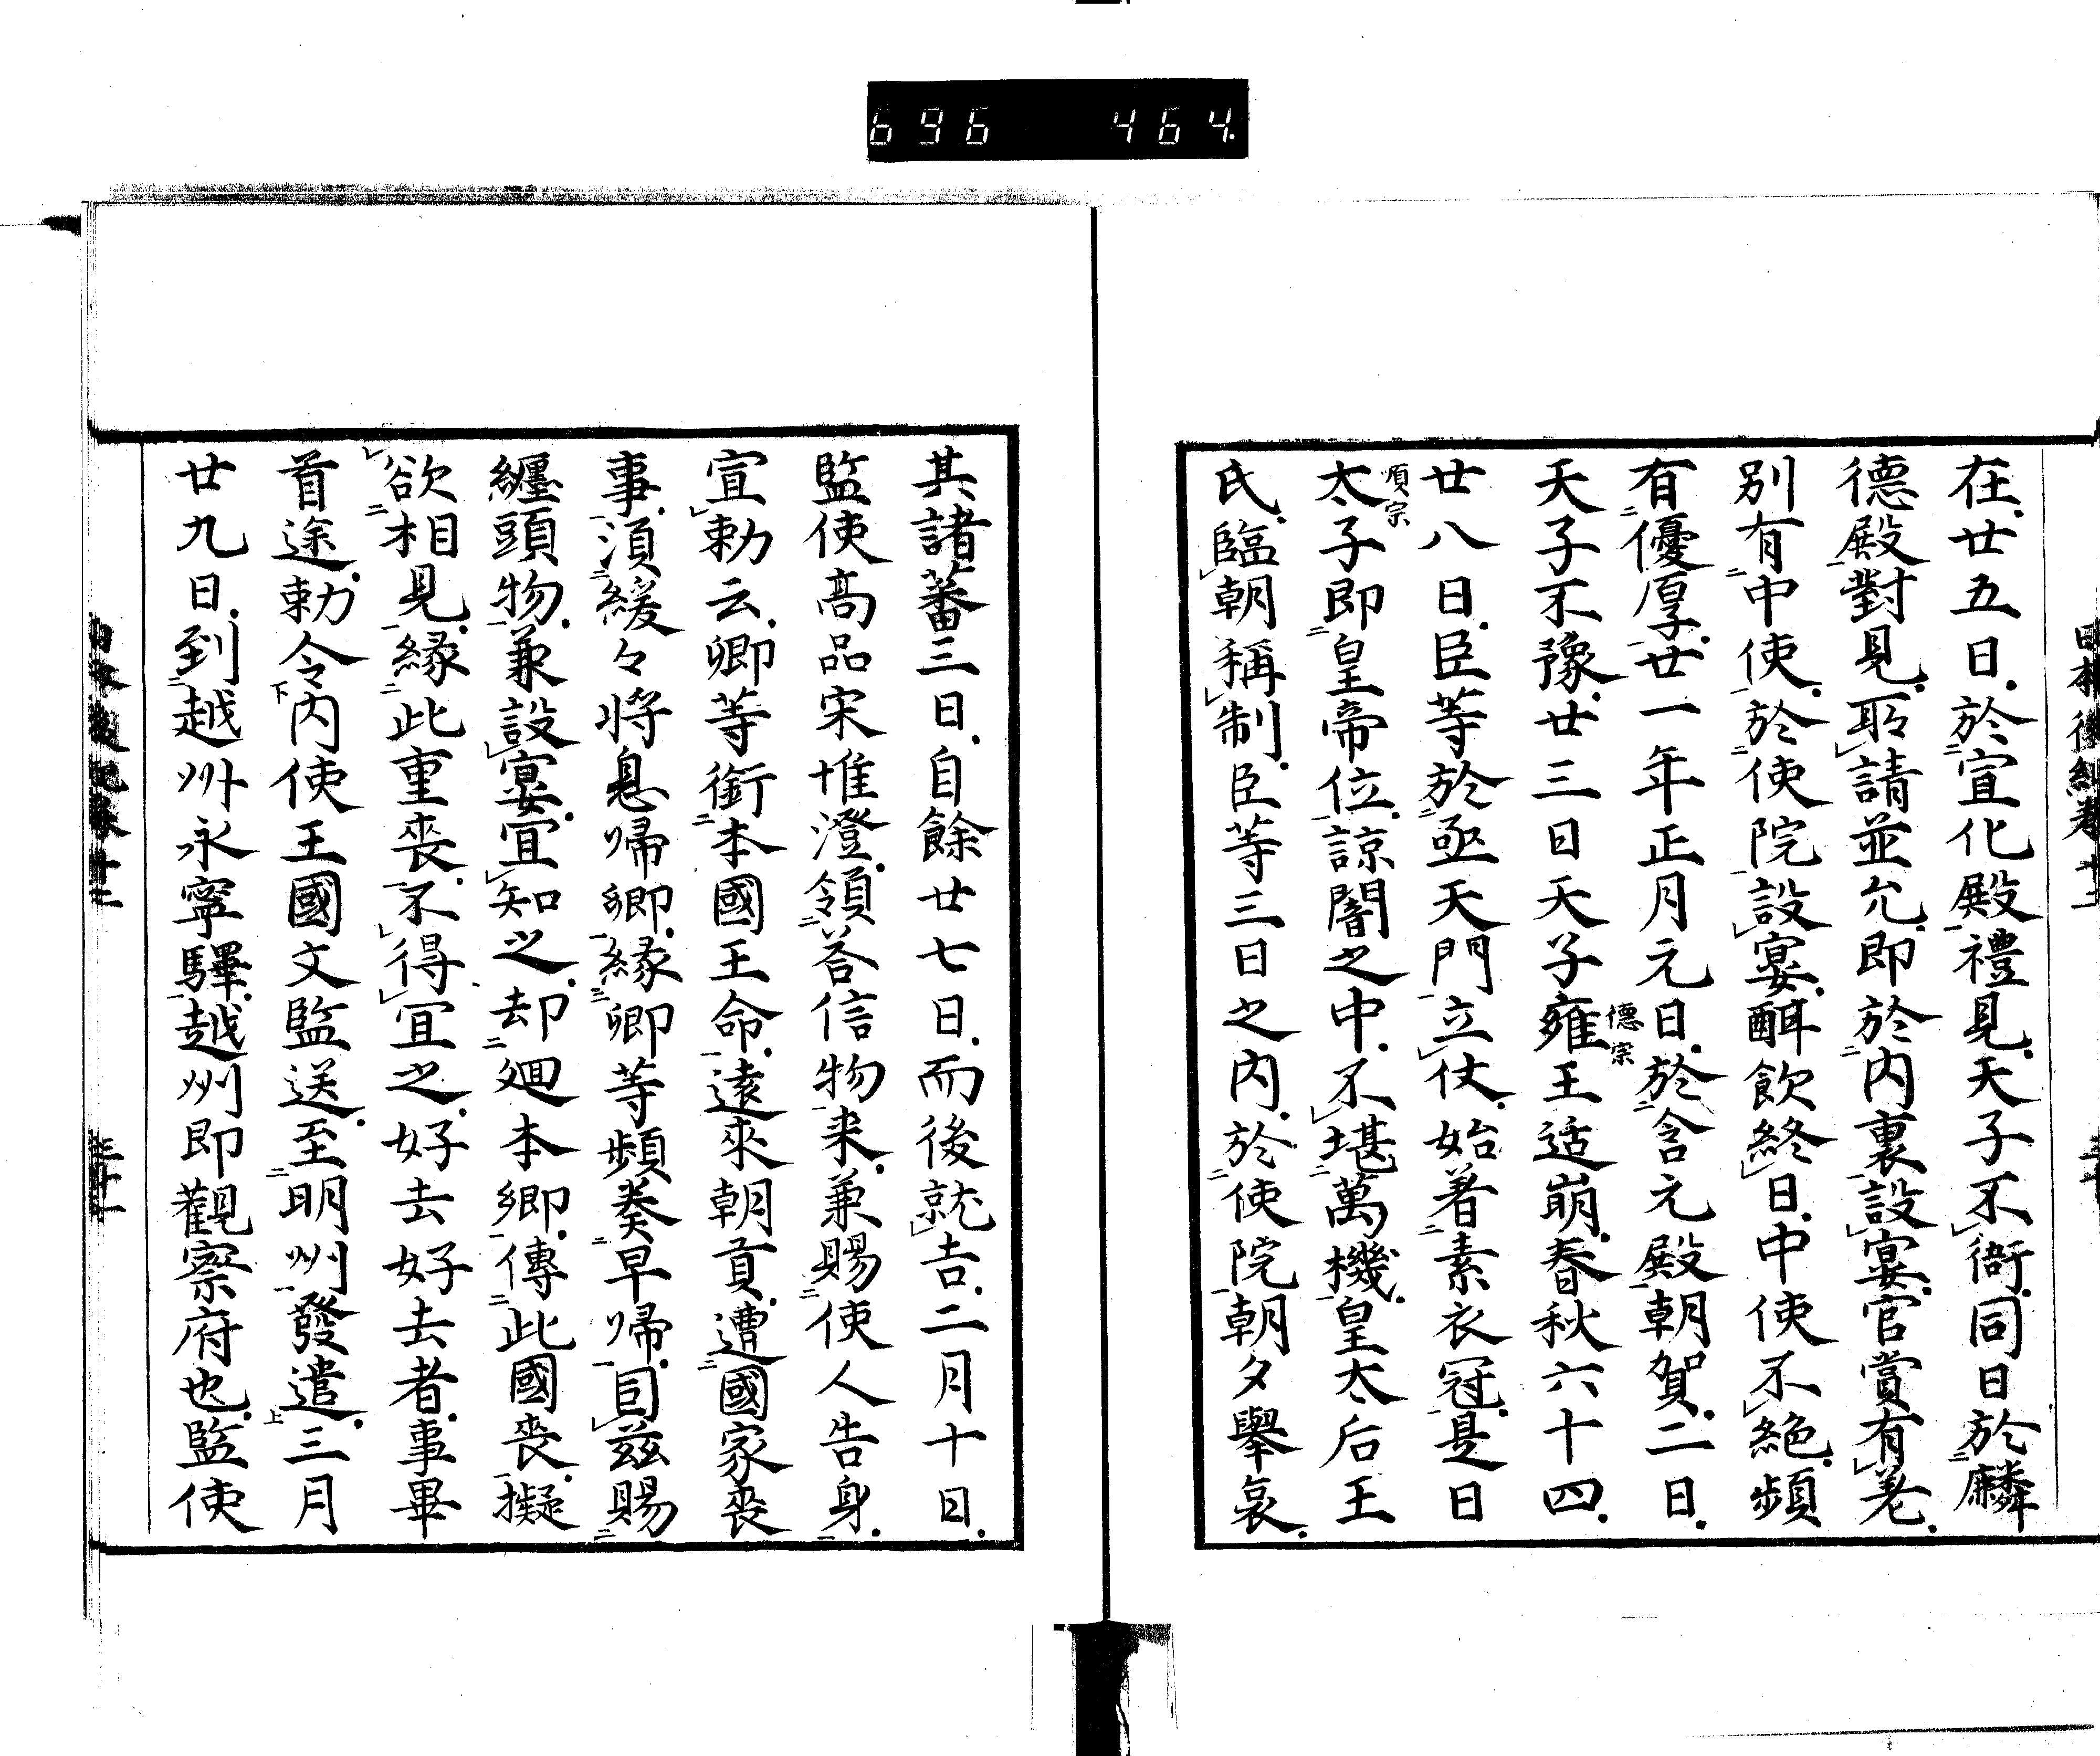 696 464
日本後紀卷十二
在廿五日於宣化殿禮見天子不衙同日於麟
德殿對見所請並允即於内裏設宴官賞有差
別有中使於使院設宴酣飲終日中使不絶頻
有優厚廿一年正月元日於含元殿朝賀二日
德宗
天子不豫廿三日天子雍王适崩春秋六十四
廿八日臣等於亟天門立仗始着素衣冠是日
順宗
太子即皇帝位諒闇之中不堪萬機皇太后王
氏臨朝稱制臣等三日之内於使院朝夕舉哀
其諸蕃三日自餘廿七日而後就吉二月十日
監使高品宋惟澄領荅信物来兼賜使人告身
宣勅云卿等銜本國王命遠來朝貢遭國家喪
事湏緩々將息歸卿縁卿等頻奏早歸因兹賜
纏頭物兼設宴宜知之却廻本卿傳此國喪擬
欲相見縁此重喪不得宜之好去好去者事畢
首途勅令内使王國文監送至明州發遣三月
廿九日到越州永寧驛越州即觀察府也監使